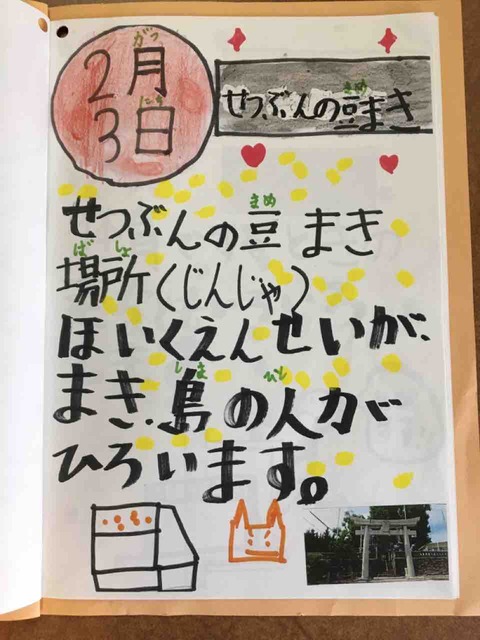 2月
3日
がつ
にち
せつぶんの豆まき
まめ
せつぶんの豆まき
まめ
場所(じんじゃ)
ばしょ
ほいくえんせいが、
まき、島の人が
しま
ひと
ひろいます。